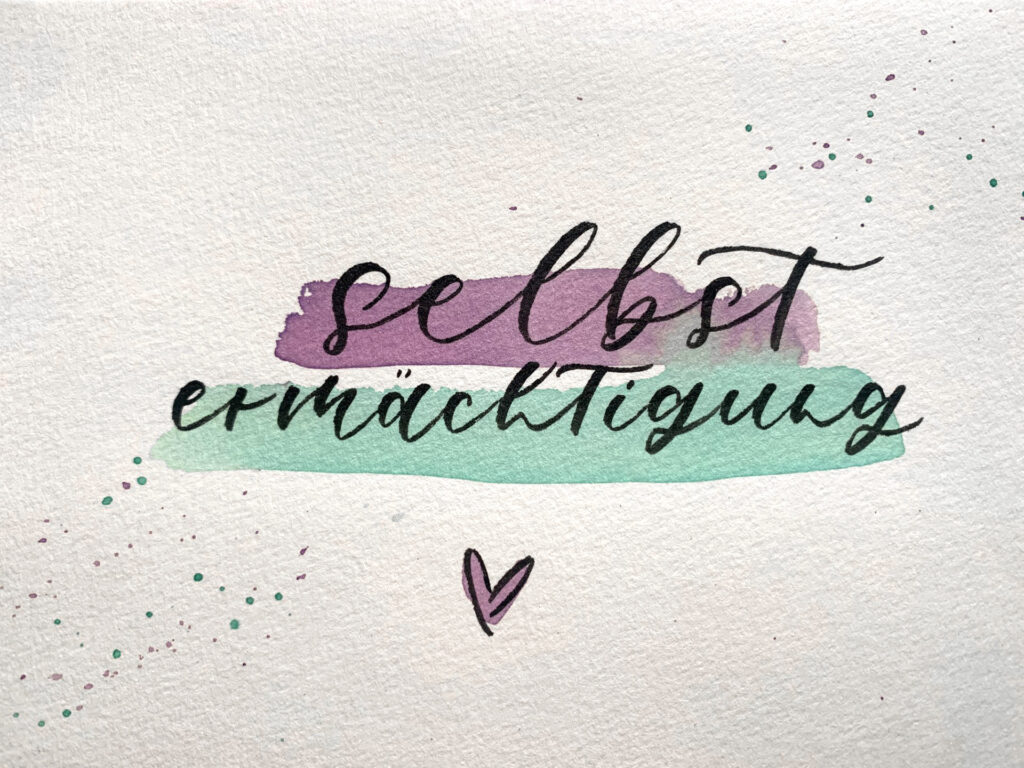 selbst
ermächtigung